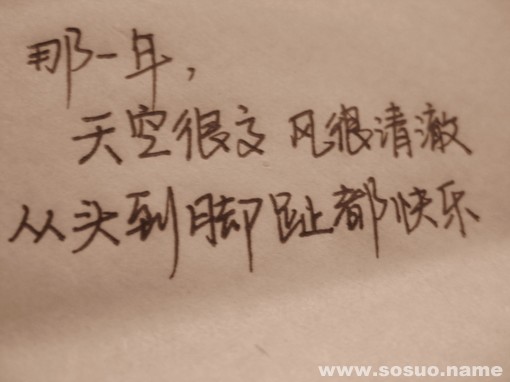 那一年，
天空很高 风很清澈
从头到脚趾都快乐
www.sosuo.name